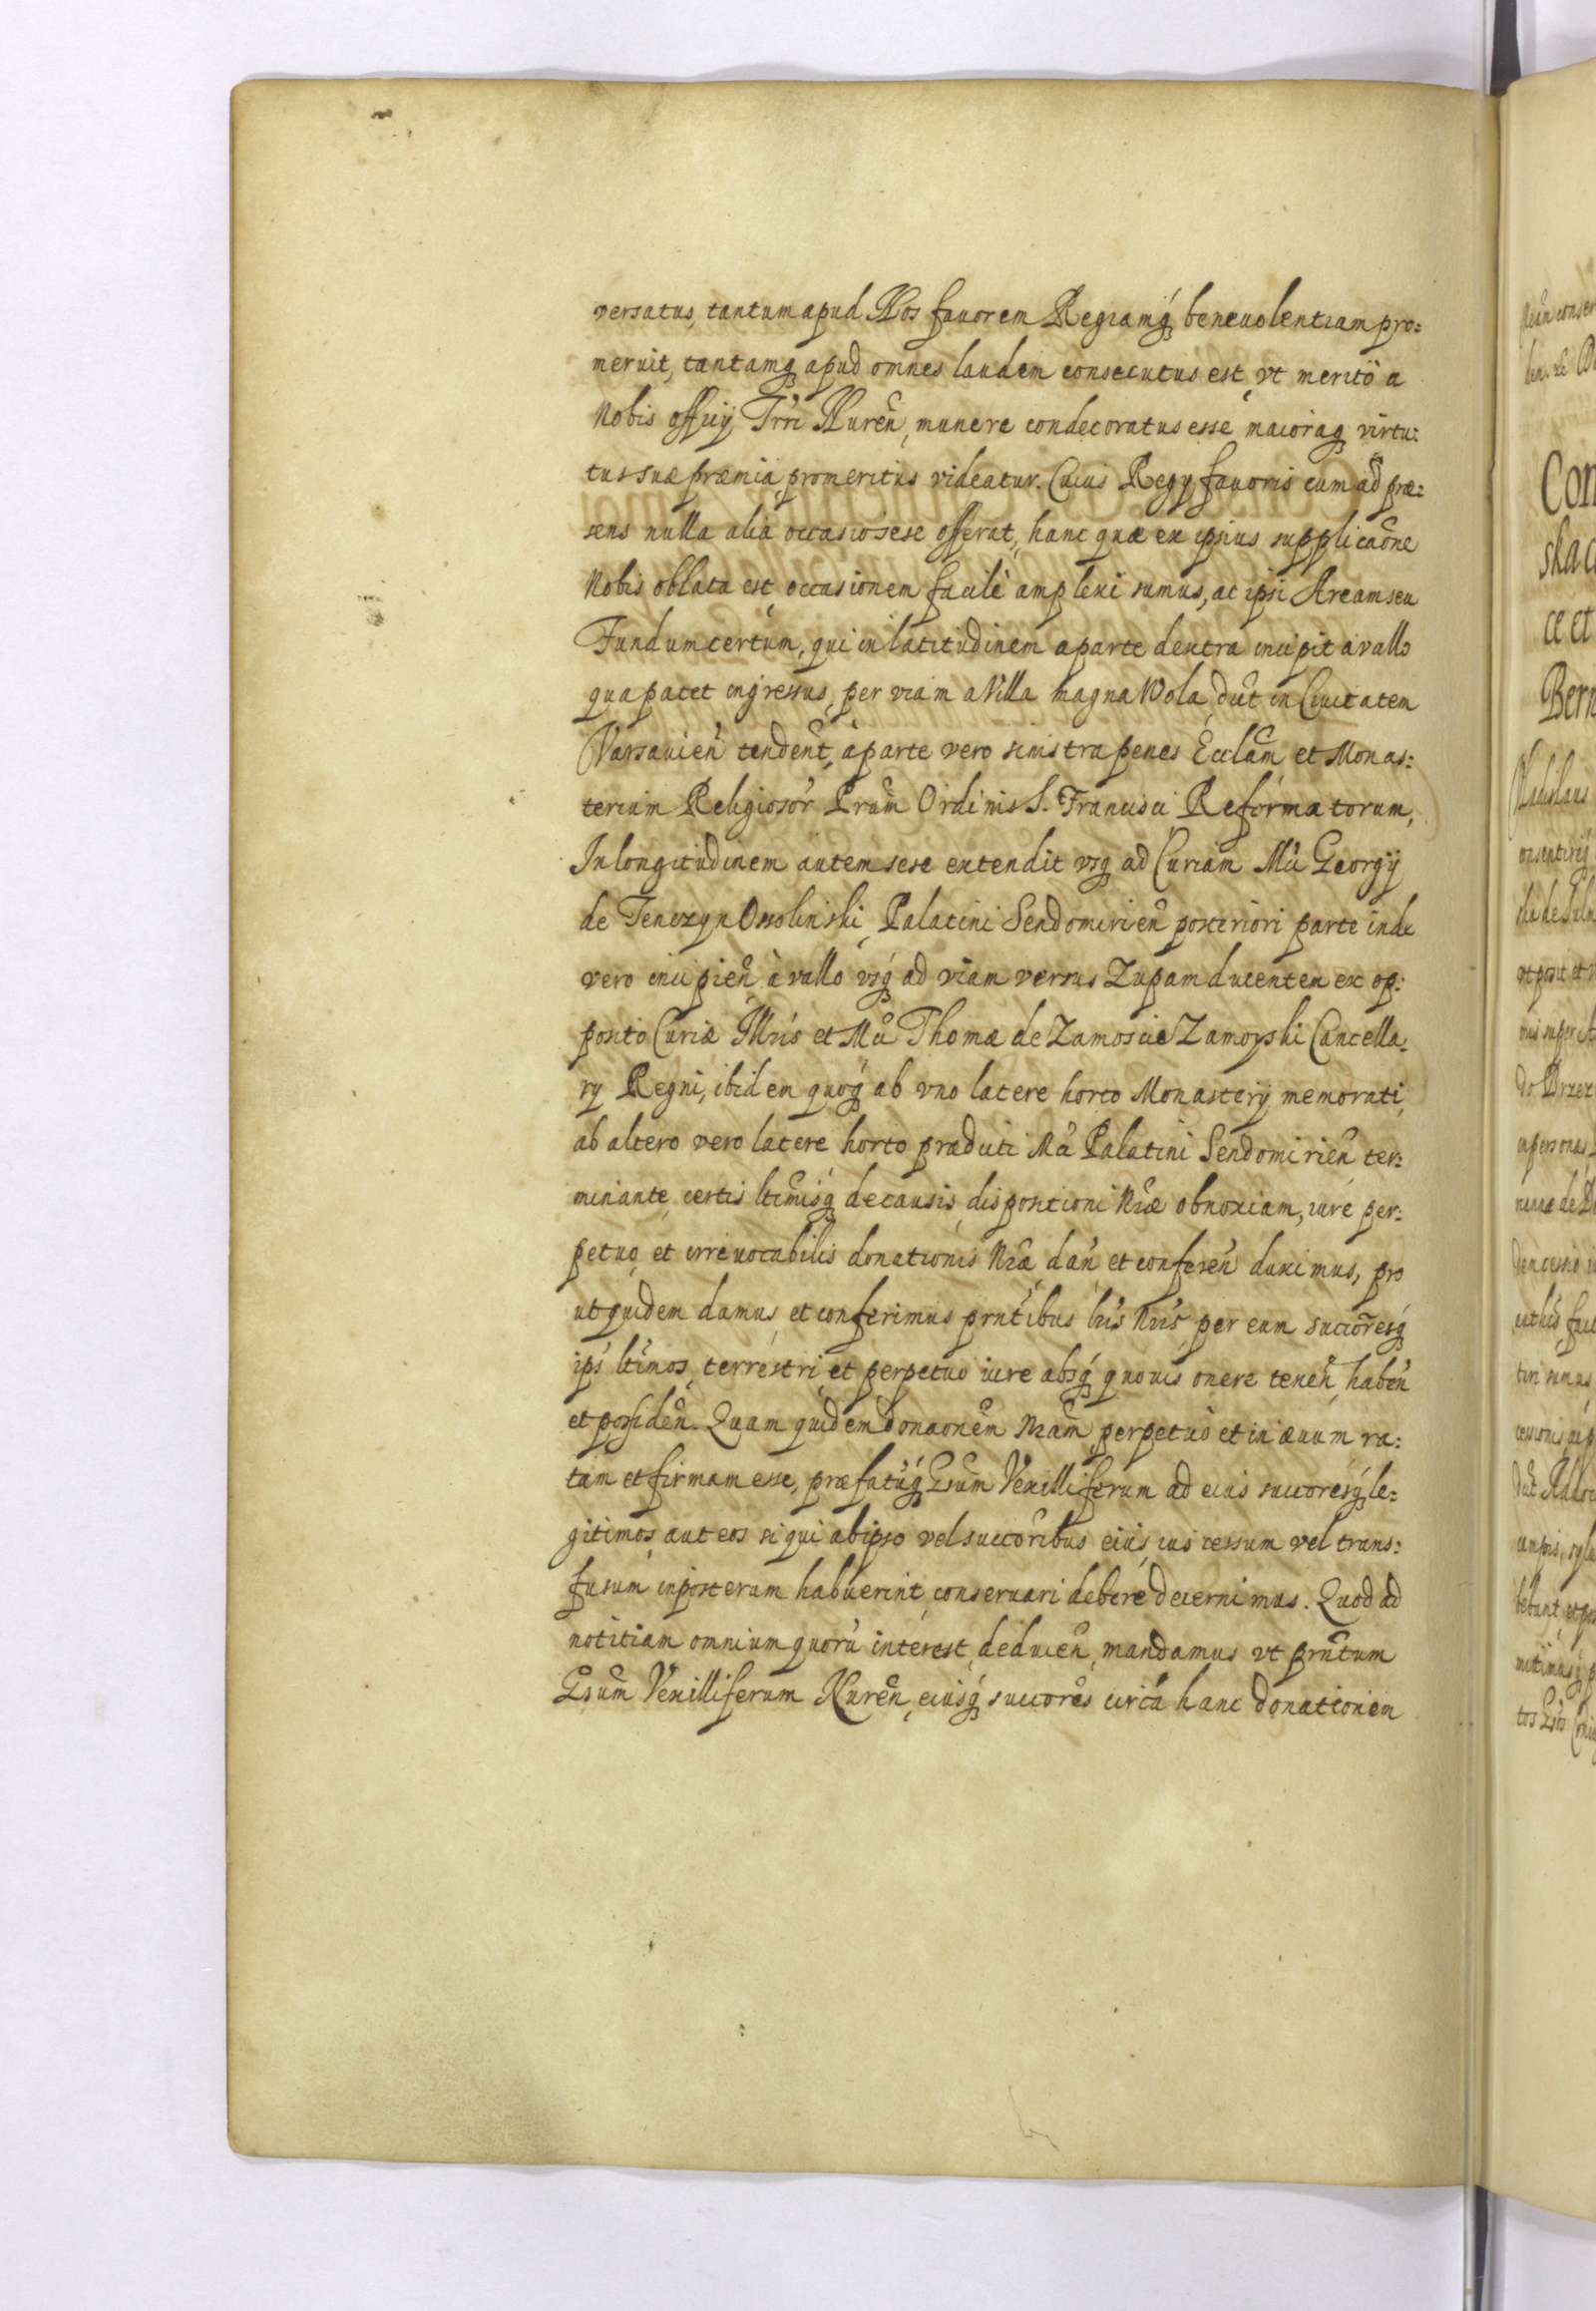 versatus, tantum apud Nos fauorem Regiamq́ beneuolentiam pro:
meruit, tantamq apud omnes laudem consecutus est, vt meritò a
Nobis officij Trrć Nureñ, munere condecoratus esse maioraq virtu:
tis suæ præmia promeritus videatur. Cuius Regij fauoris cum ad præ:
sens nulla alia occasio sese offerat, hanc quæ ex ipsius supplicaõne
Nobis oblata est, occasionem facilè amplexi sumus, ac ipsi Aream seu
Fundum certum, qui in latitudinem a parte dextra incipit a vallo
qua patet ingressus, per viam a Villa magna Wola dict̃ in Ciuitatem
Varsauieñ tendeñt, à parte vero sinistra penes Eccl̃am et Monas:
terium Religiosor̃ Pr̃um Ordinis S. Francisci Reformatorum,
In longitudinem autem sese extendit vsq ad Curiam Mci Georgij
de Tenczyn Ossolinski, Palatini Sendomirieñ posteriori parte inde
vero incipieñ à vallo vsq́ ad viam versus Zupam ducentem ex op:
posito Curiæ Illris et Mci Thomæ de Zamoscie Zamoyski Cancella:
rij Regni, ibidem quoq́ ab vno latere horto Monasterij memorati,
ab altero vero latere horto prædicti Mci Palatini Sendomirieñ ter:
minante, certis lt̃imisq́ de causis, dispositioni Nr̃æ obnoxiam, iure per:
petuo, et irreuocabilis donationis Nr̃æ dañ et confereñ duximus, pro
ut quidem damus, et conferimus prnt̃ibus lr̃is Nr̃is per eum succoresq́
ips̃ lt̃imos, terrestri, et perpetuo iure absq́ quouis onere teneñ, habeñ
et possideñ. Quam quidem donaoñem Nr̃am perpetuò et in æuum ra:
tam et firmam esse, præfatũq́ Gsum Vexilliferum ad eius succoresq́ le:
gitimos, aut eos si qui ab ipso vel succoribus eius, ius cessum vel trans:
fusum in posterum habuerint, conseruari debere decernimus. Quod ad
notitiam omnium quorũ interest, deduceñ, mandamus vt prñtum
Gsum Vexilliferum Nureñ, eiusq́ succores circa hanc donationem
Con
ce et